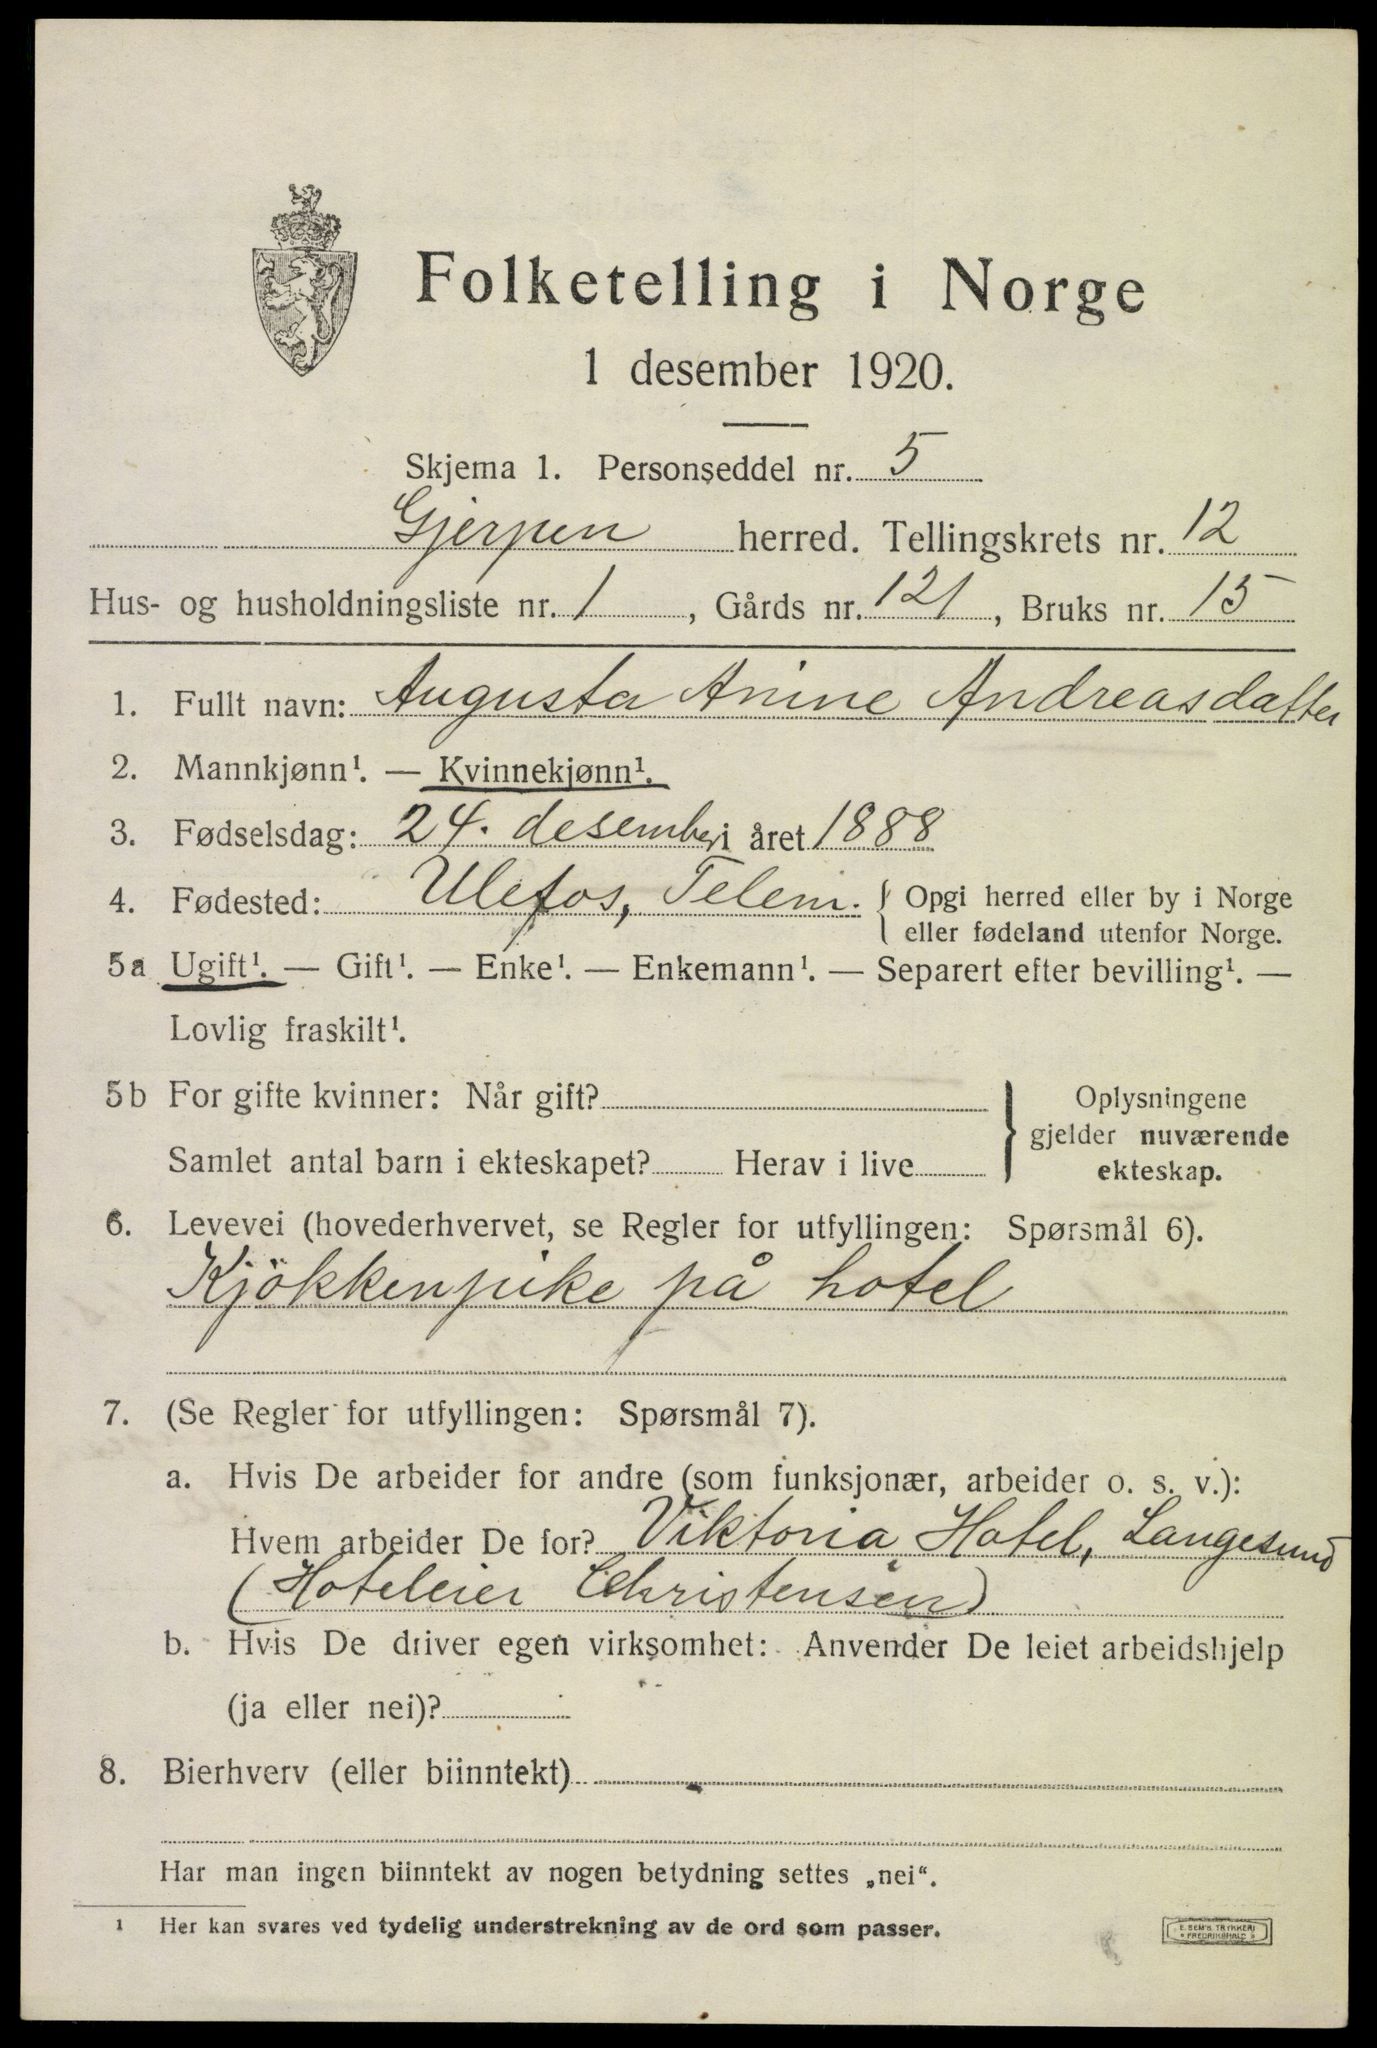 Folketelling i Norge
1 desember 1920.
Skjema 1. Personseddel nr. 5
Gjerpen herred. Tellingskrets nr. 12
Hus- og husholdningsliste nr. 1, Gårds nr. 121, Bruks nr. 15
1. Fullt navn: Augusta Anine Andreasdatter
2. Mannkjønn¹. — Kvinnekjønn¹.
3. Fødselsdag: 24. desember i året 1888
4. Fødested: Ulefos, Telem. { Opgi herred eller by i Norge
eller fødeland utenfor Norge.
5a Ugift¹. — Gift¹. — Enke¹. — Enkemann¹. — Separert efter bevilling¹. —
Lovlig fraskilt¹.
5b For gifte kvinner: Når gift? } Oplysningene
gjelder nuværende
Samlet antal barn i ekteskapet? Herav i live
ekteskap.
6. Levevei (hovederhvervet, se Regler for utfyllingen: Spørsmål 6).
Kjökkenpike på hotel
7. (Se Regler for utfyllingen: Spørsmål 7).
a. Hvis De arbeider for andre (som funksjonær, arbeider o. s. v.):
Hvem arbeider De for? Viktoria Hotel, Langesund
(Hoteleier Christensen)
b. Hvis De driver egen virksomhet: Anvender De leiet arbeidshjelp
(ja eller nei)?
8. Bierhverv (eller biinntekt)
Har man ingen biinntekt av nogen betydning settes „nei“.
¹ Her kan svares ved tydelig understrekning av de ord som passer.
E. SEM'S TRYKKERI
FREDRIKSHALD